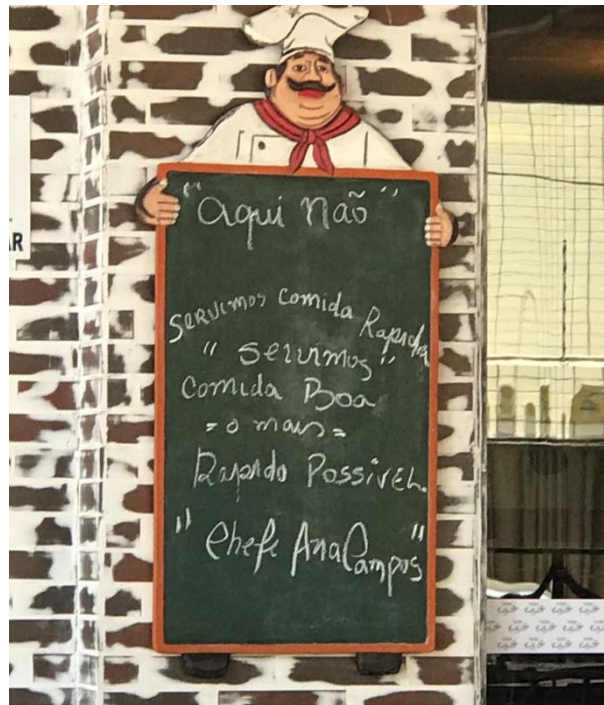 AR
"Aqui não"
Servimos comida Rapida
"Servimos"
Comida Boa
= o mais =
Rapido Possivel.
"Chefe Ana Campos"